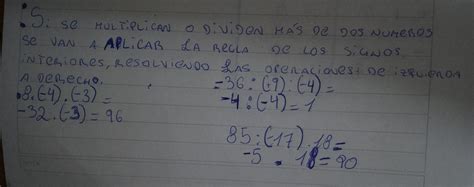 : Si se multiplican o dividen más de dos numeros
se van a aplicar la regla de los signos
interiores, resolviendo las operaciones de izquierda
a derecho.
8.(-4).(-3)=
-32.(-3)=96
-36:(-9):(-4)=
-4:(-4)=1
85:(-17).18=
-5.18=90